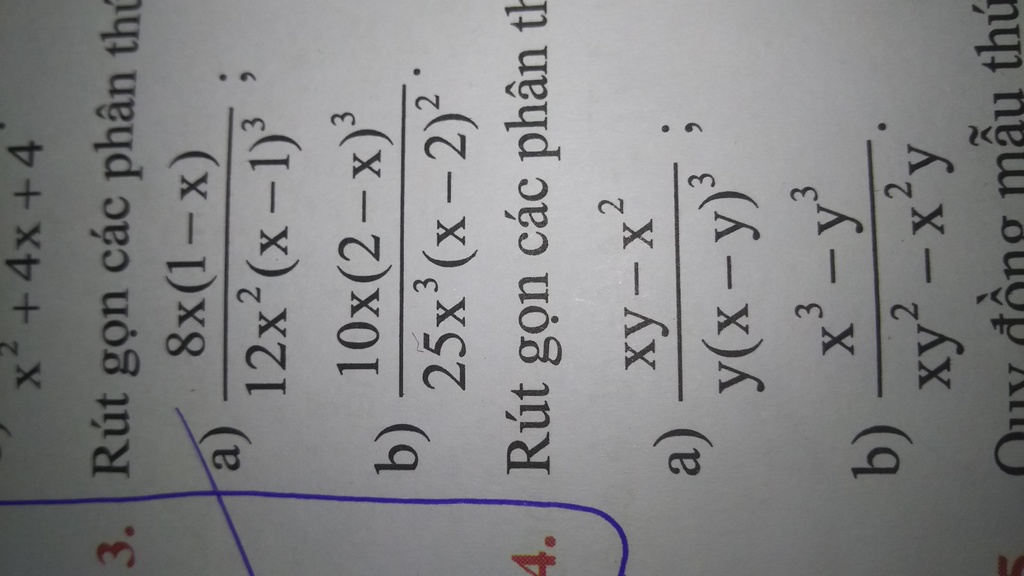 x² + 4x + 4
3. Rút gọn các phân
a) 8x(1 – x) / 12x²(x – 1)³ ;
b) 10x(2 – x)³ / 25x³(x – 2)² .
4. Rút gọn các phân
a) xy – x² / y(x – y)³ ;
b) x³ – y³ / xy² – x²y .
Quy đồng mẫu